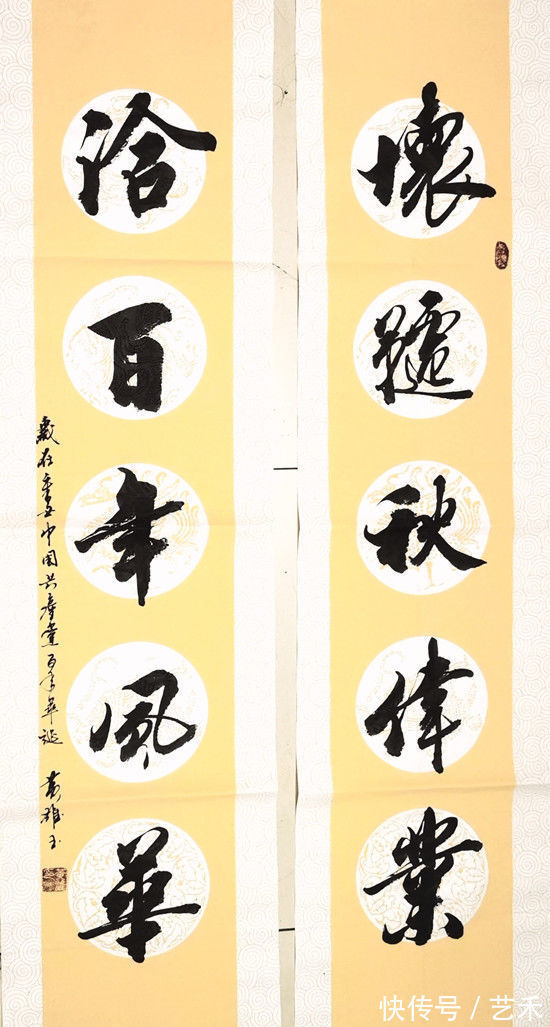 懷韆秋偉業
洽百年風華
歲在辛丑中国共產黨百年華誕 黃雄玉
快传号／艺禾